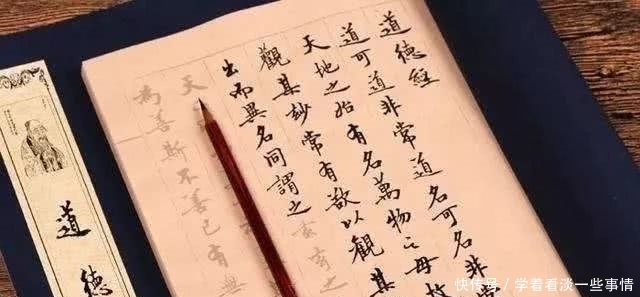 道德經
道可道非常道名可名非
天地之始有名萬物之母故
觀其妙常有欲以觀其
出而異名同謂之玄玄之
天
為善斯不善已有無
道德
快传号 / 学着看淡一些事情